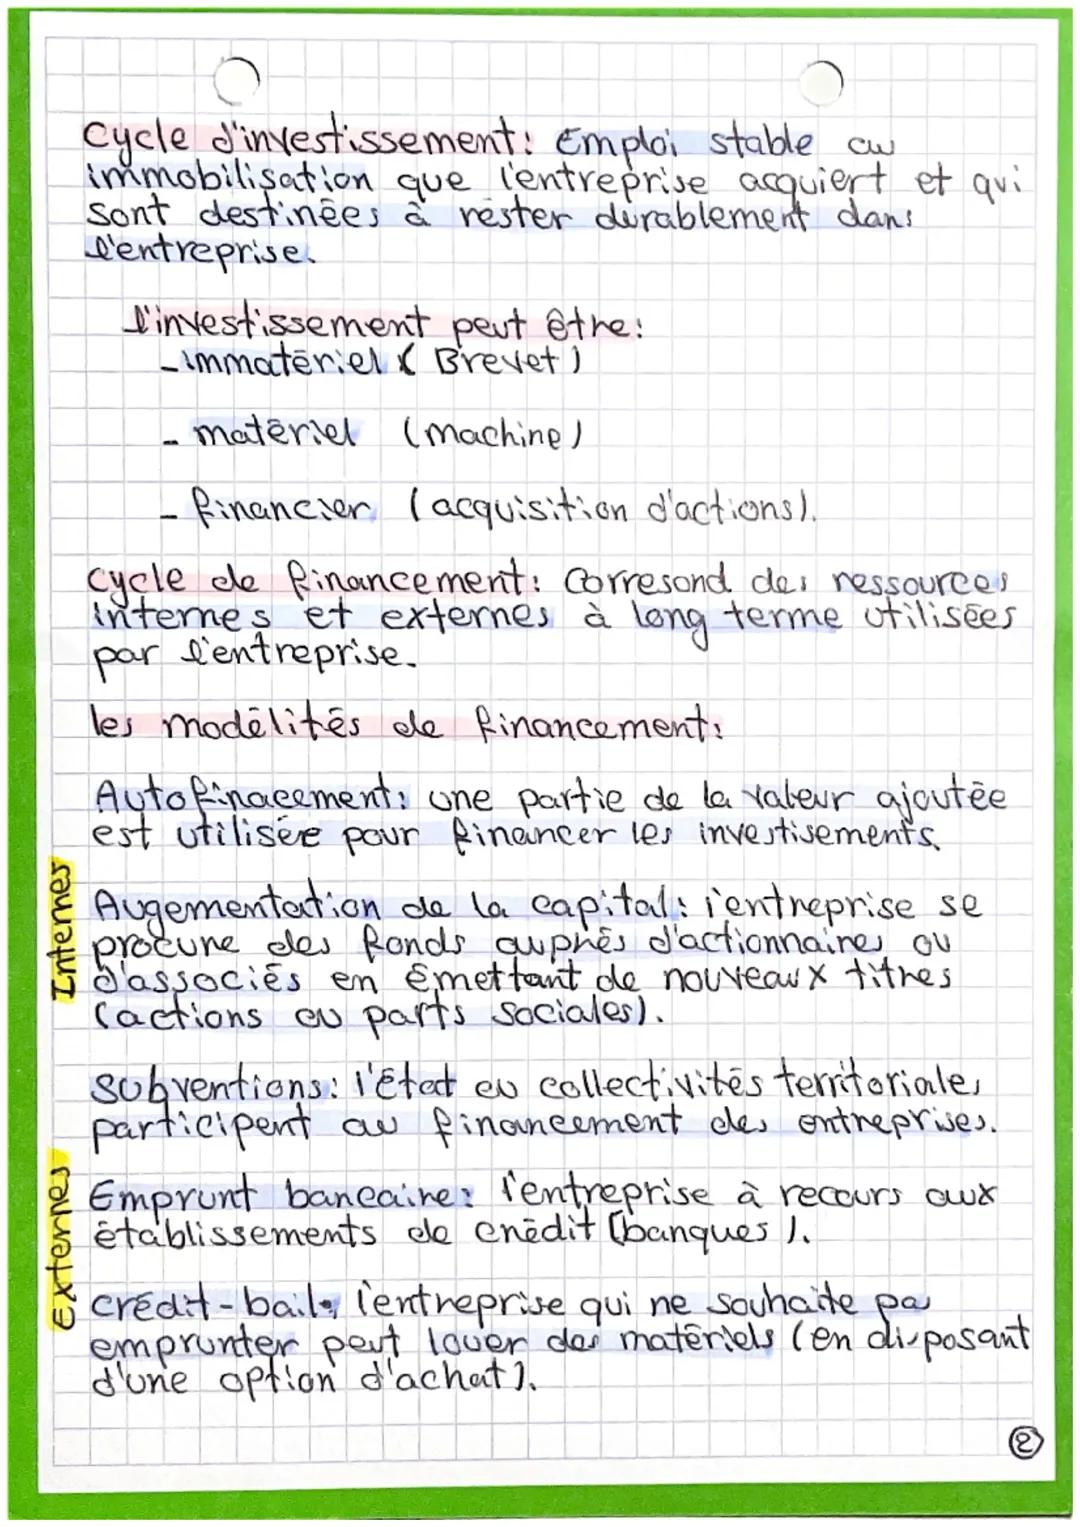 Cycle d'investissement: Emploi stable ou
immobilisation que l'entreprise acquiert et qui
sont destinées à rester durablement dans
l'entreprise.
l'investissement peut être:
- immatériel ( Brevet )
- matériel (machine)
- financier (acquisition d'actions).
cycle de financement: Corresond des ressources
internes et externes à long terme utilisées
par l'entreprise.
les modélités de financement:
Autofinacement: une partie de la valeur ajoutée
est utilisée pour financer les investisements.
Internes
Augementation de la capital: l'entreprise se
procure des fonds auprès d'actionnaires ou
d'associés en émettant de nouveaux titres
(actions ou parts sociales).
Subventions: l'état ou collectivités territoriales
participent au financement des entreprises.
Externes
Emprunt bancaire: l'entreprise à recours aux
établissements de crédit (banques).
crédit-bail: l'entreprise qui ne souhaite pas
emprunter peut louer des matériels (en disposant
d'une option d'achat).
2